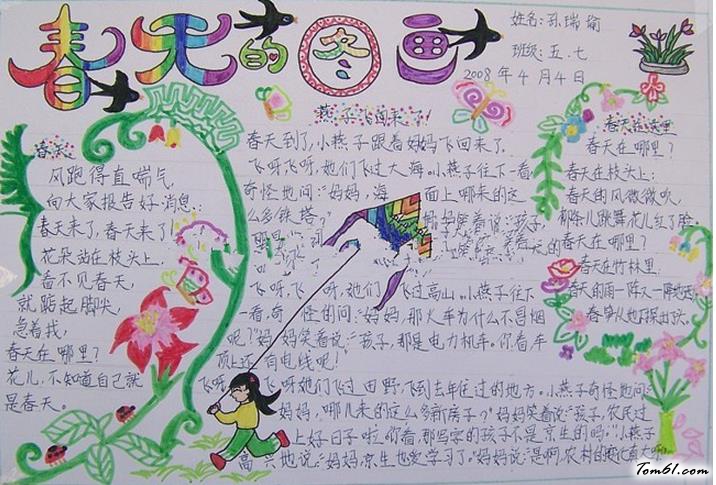 春天的图画
姓名:孙瑞瑜
班级:五.七
2008年4月4日
春天
风跑得直喘气,
向大家报告好消息:
春天来了,春天来了!
花朵站在枝头上,
看不见春天,
就踮起脚尖,
急着找,
春天在哪里?
花儿,不知道自己就
是春天。
燕子飞回来了!
春天到了,小燕子跟着妈妈飞回来了。
飞呀飞呀,她们飞过大海。小燕子往下一看,
奇怪地问:“妈妈,海面上哪来的这
么多铁塔?”妈妈笑着说:“孩子,
飞呀,飞呀,她们飞过高山。小燕子往下
一看,奇怪的问:“妈妈,那火车为什么不冒烟
呢?”妈妈笑着说:“孩子,那是电力机车。你看车
顶上还有电线呢!”
飞呀,飞呀她们飞过田野,飞到去年住过的地方。小燕子奇怪地问:
“妈妈,哪儿来的这么多新房子?”妈妈笑着说:“孩子,农民过
上好日子啦。你看,那些家的孩子不是京生的吗,”小燕子
高兴地说:“妈妈,京生也爱学习了。”妈妈说:“是啊,农村的变化真大啊
春天在哪里
春天在哪里?
春天在枝头上:
春天的风微微吹,
柳条儿跳舞花儿红了脸。
春天在哪里?
春天在竹林里:
春天的雨一阵又一阵
春笋从地下探出头。
Tom61.com